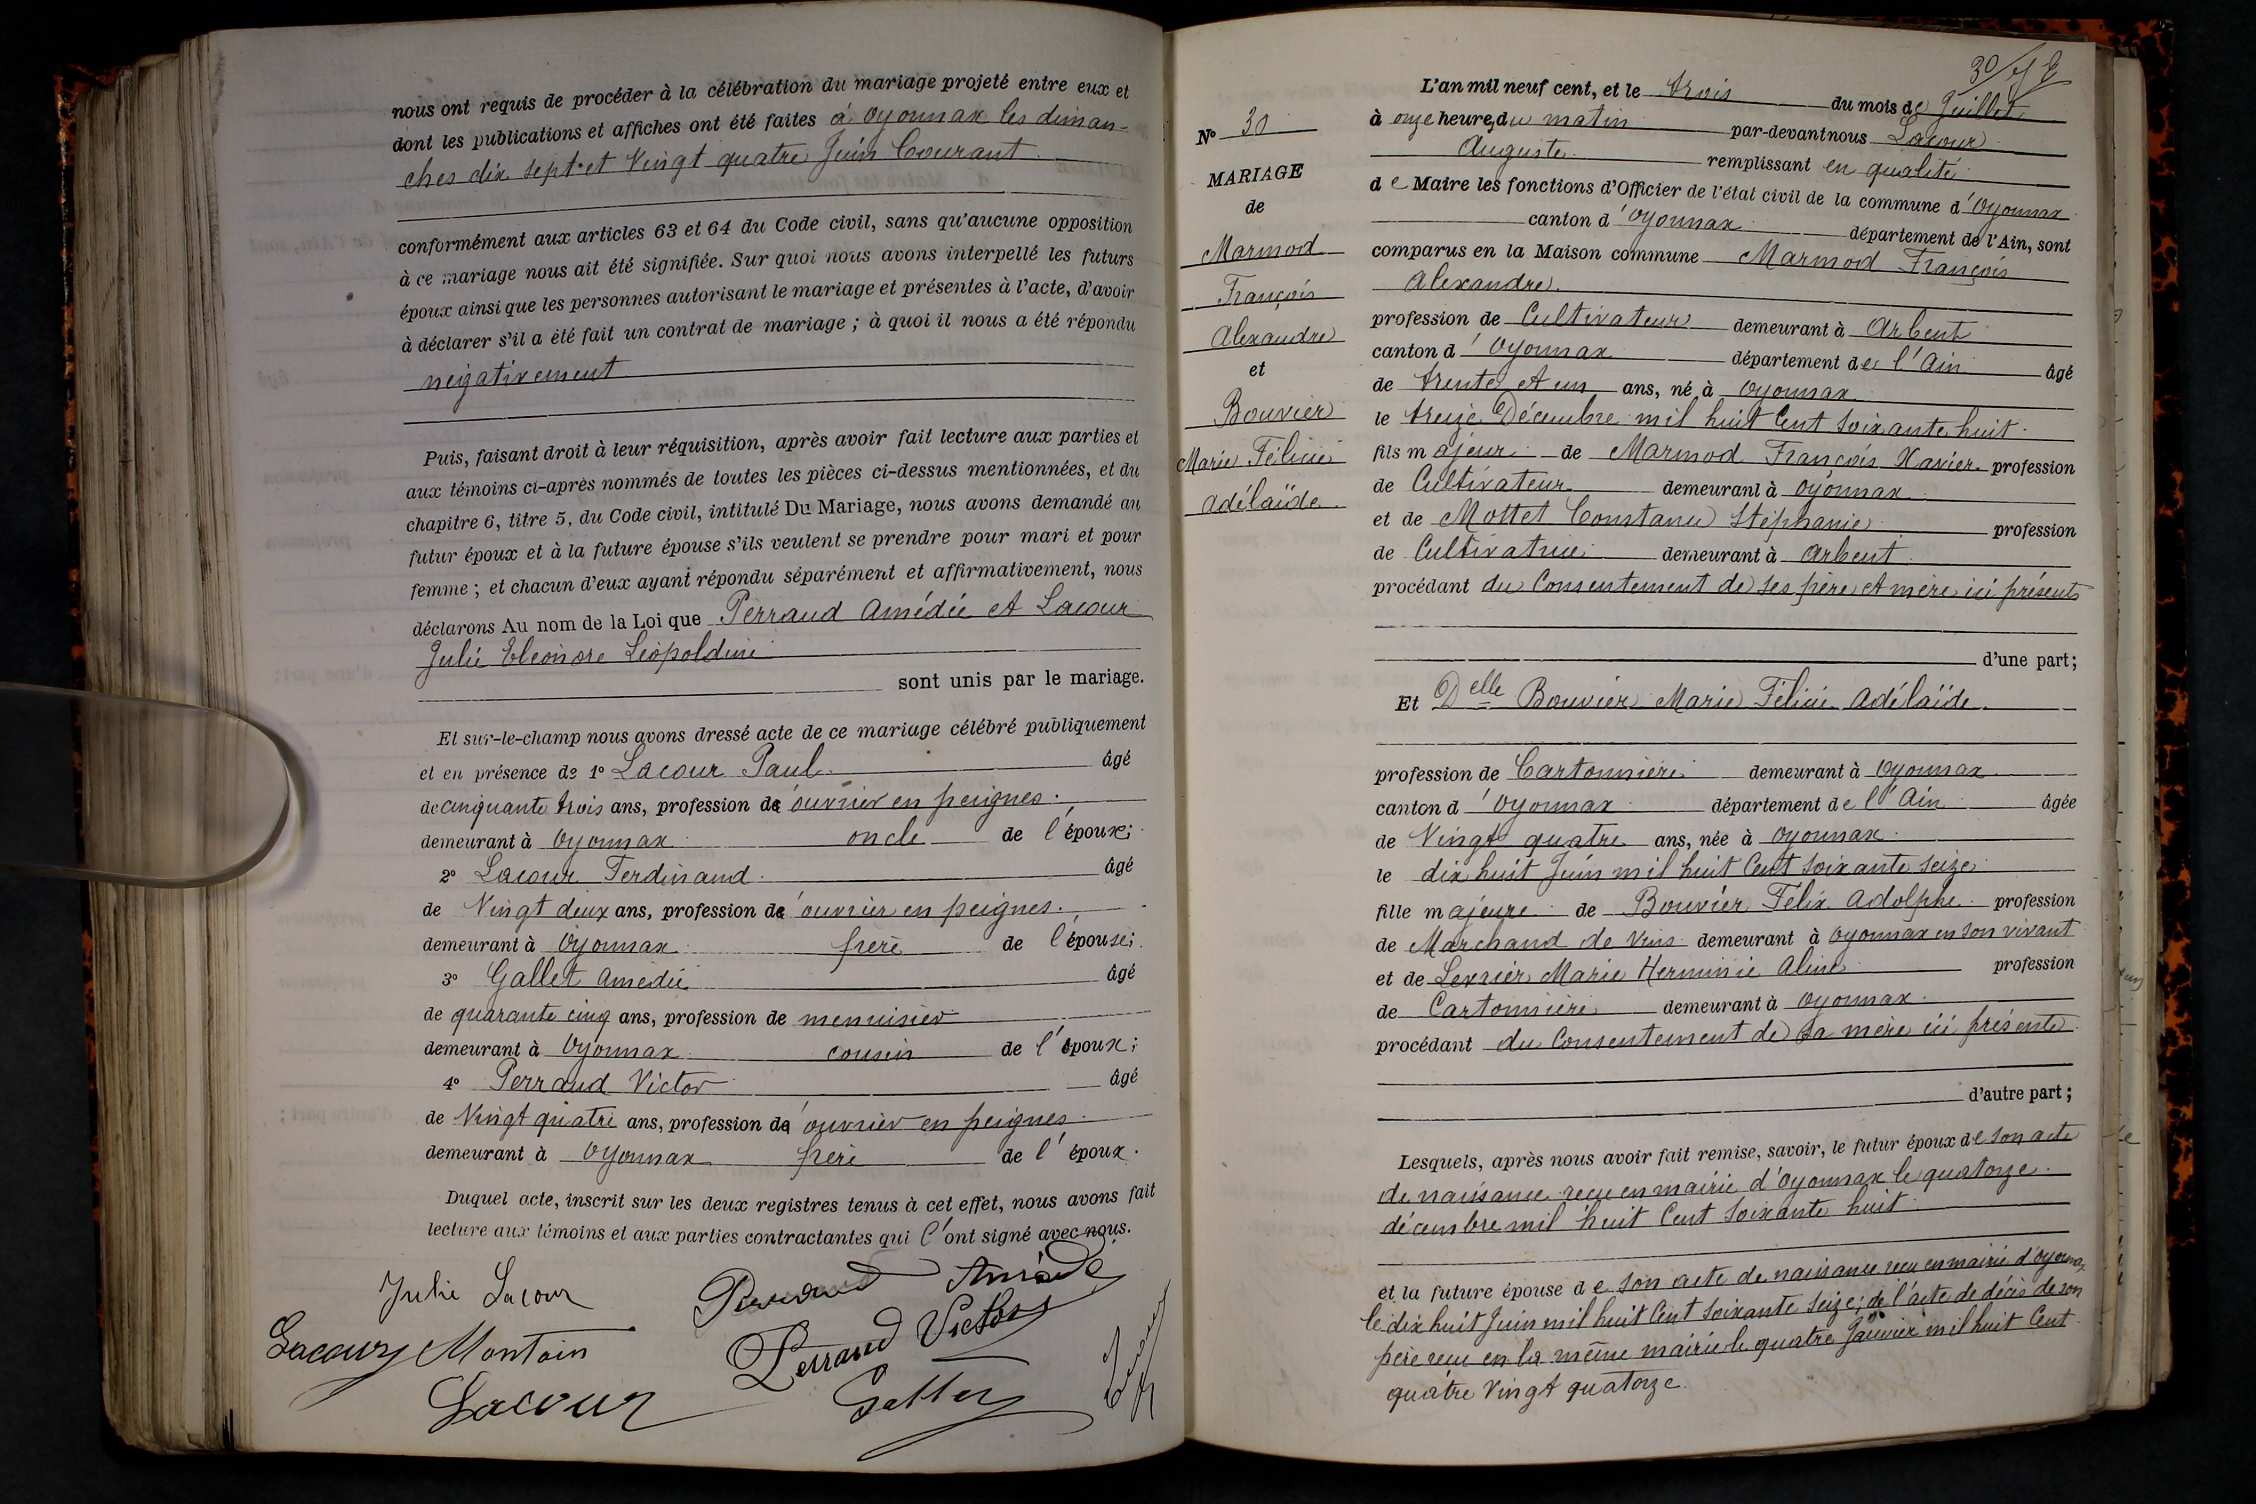 nous ont requis de procéder à la célébration du mariage projeté entre eux et
dont les publications et affiches ont été faites à Oyonnax les diman-
ches dix sept et Vingt quatre Juin Courant
conformément aux articles 63 et 64 du Code civil, sans qu'aucune opposition
à ce mariage nous ait été signifiée. Sur quoi nous avons interpellé les futurs
époux ainsi que les personnes autorisant le mariage et présentes à l'acte, d'avoir
à déclarer s'il a été fait un contrat de mariage ; à quoi il nous a été répondu
négativement
Puis, faisant droit à leur réquisition, après avoir fait lecture aux parties et
aux témoins ci-après nommés de toutes les pièces ci-dessus mentionnées, et du
chapitre 6, titre 5, du Code civil, intitulé Du Mariage, nous avons demandé au
futur époux et à la future épouse s'ils veulent se prendre pour mari et pour
femme ; et chacun d'eux ayant répondu séparément et affirmativement, nous
déclarons Au nom de la Loi que Perraud Amédée et Lacour
Julie Eléonore Léopoldine
sont unis par le mariage.
Et sur-le-champ nous avons dressé acte de ce mariage célébré publiquement
et en présence de 1° Lacour Paul âgé
de cinquante trois ans, profession d'ouvrier en peignes.
demeurant à Oyonnax oncle de l'époux;
2° Lacour Ferdinand. âgé
de Vingt deux ans, profession d'ouvrier en peignes.
demeurant à Oyonnax frère de l'épouse;
3° Gallet Amédée âgé
de quarante cinq ans, profession de menuisier
demeurant à Oyonnax cousin de l'époux;
4° Perraud Victor âgé
de Vingt quatre ans, profession d'ouvrier en peignes.
demeurant à Oyonnax frère de l'époux.
Duquel acte, inscrit sur les deux registres tenus à cet effet, nous avons fait
lecture aux témoins et aux parties contractantes qui l'ont signé avec nous.
Julie Lacour Perraud Amédé
Lacour Montain Perraud Victor
Lacour
30
N° 30
MARIAGE
de
Marmod
François
Alexandre
et
Bouvier
Marie Félicie
Adélaïde
L'an mil neuf cent, et le trois du mois de Juillet
à onze heures du matin par-devant nous Lacour
Auguste remplissant en qualité
de Maire les fonctions d'Officier de l'état civil de la commune d'Oyonnax
canton d'Oyonnax département de l'Ain, sont
comparus en la Maison commune Marmod François
Alexandre
profession de Cultivateur demeurant à Arbent
canton d'Oyonnax département de l'Ain âgé
de trente et un ans, né à Oyonnax
le treize Décembre mil huit Cent soixante huit.
fils majeur de Marmod François Xavier profession
de Cultivateur demeurant à Oyonnax
et de Mottet Constance Stéphanie profession
de Cultivatrice demeurant à Arbent
procédant du Consentement de ses père et mère ici présents
d'une part;
Et Delle Bouvier Marie Félicie Adélaïde
profession de Cartonnière demeurant à Oyonnax
canton d'Oyonnax département de l'Ain âgée
de Vingt quatre ans, née à Oyonnax
le dix huit Juin mil huit Cent soixante seize
fille majeure de Bouvier Félix Adolphe profession
de Marchand de vins demeurant à Oyonnax en son vivant
et de Levrier Marie Herminie Aline profession
de Cartonnière demeurant à Oyonnax
procédant du Consentement de sa mère ici présente
d'autre part;
Lesquels, après nous avoir fait remise, savoir, le futur époux de son acte
de naissance reçu en mairie d'Oyonnax le quatorze
décembre mil huit Cent soixante huit
et la future épouse de son acte de naissance reçu en mairie d'Oyonnax
le dix huit Juin mil huit Cent soixante seize; de l'acte de décès de son
père reçu en la même mairie le quatre Janvier mil huit Cent
quatre Vingt quatorze